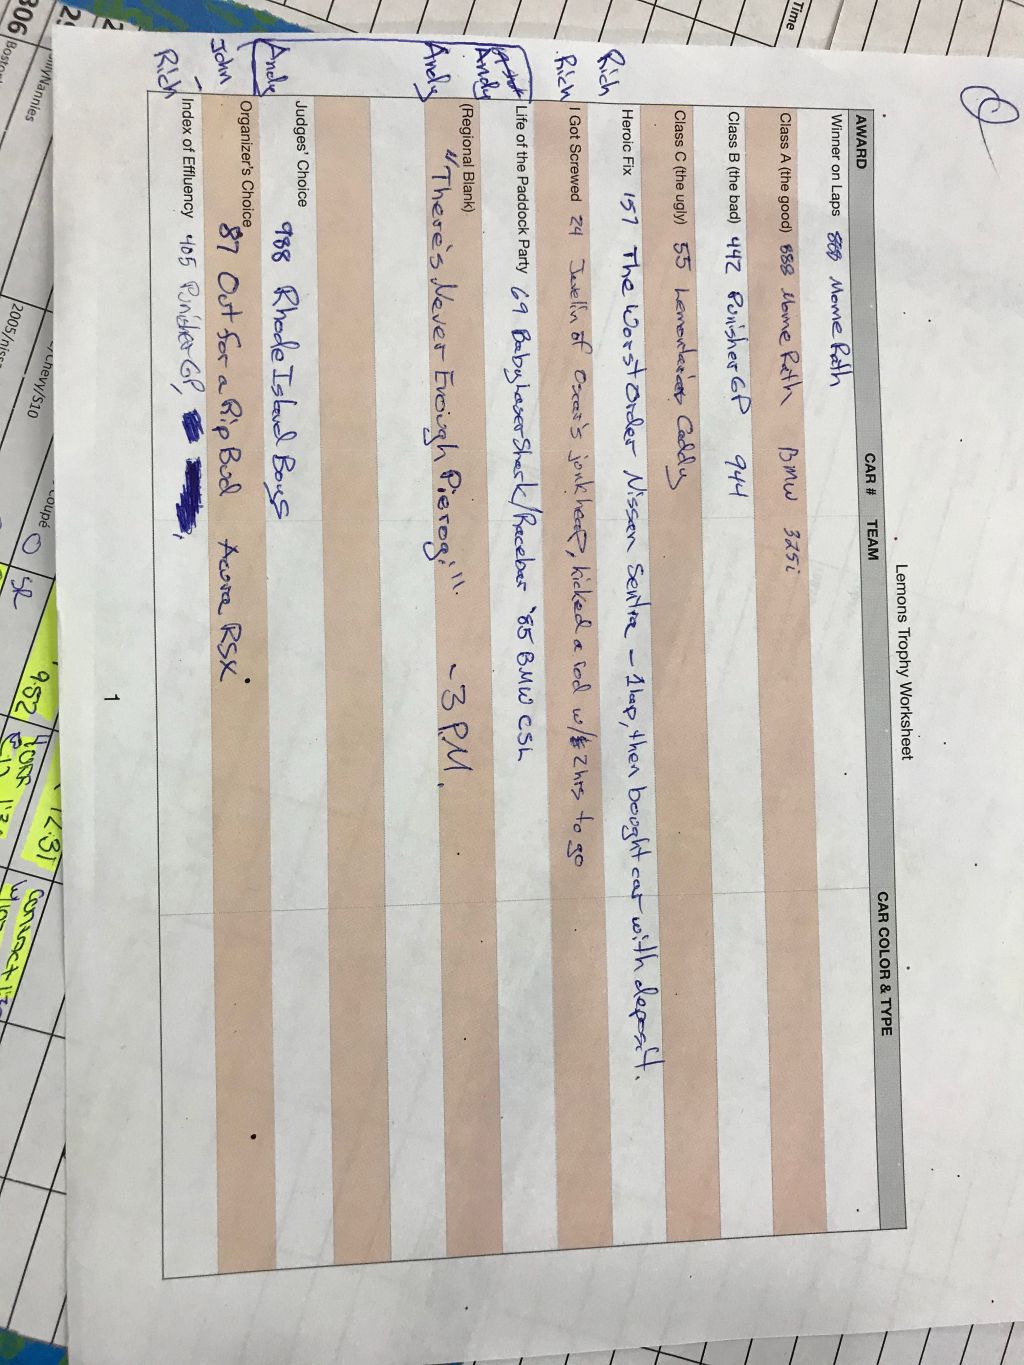 Lemons Trophy Worksheet
AWARD CAR # TEAM CAR COLOR & TYPE
Winner on Laps 888 Mome Rath
Class A (the good) 888 Mome Rath BMW 325i
Class B (the bad) 442 Punisher GP 944
Class C (the ugly) 55 Caddy
Rich Heroic Fix 157 The Worst Order Nissan Sentra - 1 lap, then bought car with deposit.
Rich I Got Screwed 24 Javelin of Oscar's junkheap, kicked a rod w/ 2 hrs to go
Andy Life of the Paddock Party 69 Baby Laser Shark/Racebar '85 BMW CSL
Andy (Regional Blank)
"There's Never Enough Pierogi". ~3 P.M.
Andy Judges' Choice 988 Rhode Island Boys
John Organizer's Choice 87 Out for a Rip Bud Acura RSX
Rich Index of Effluency 405 Punisher GP,
1
Time
306
Boston
Nannies
2005/niss
Chevy/S10
coupé
SR
952
12:31
Contact